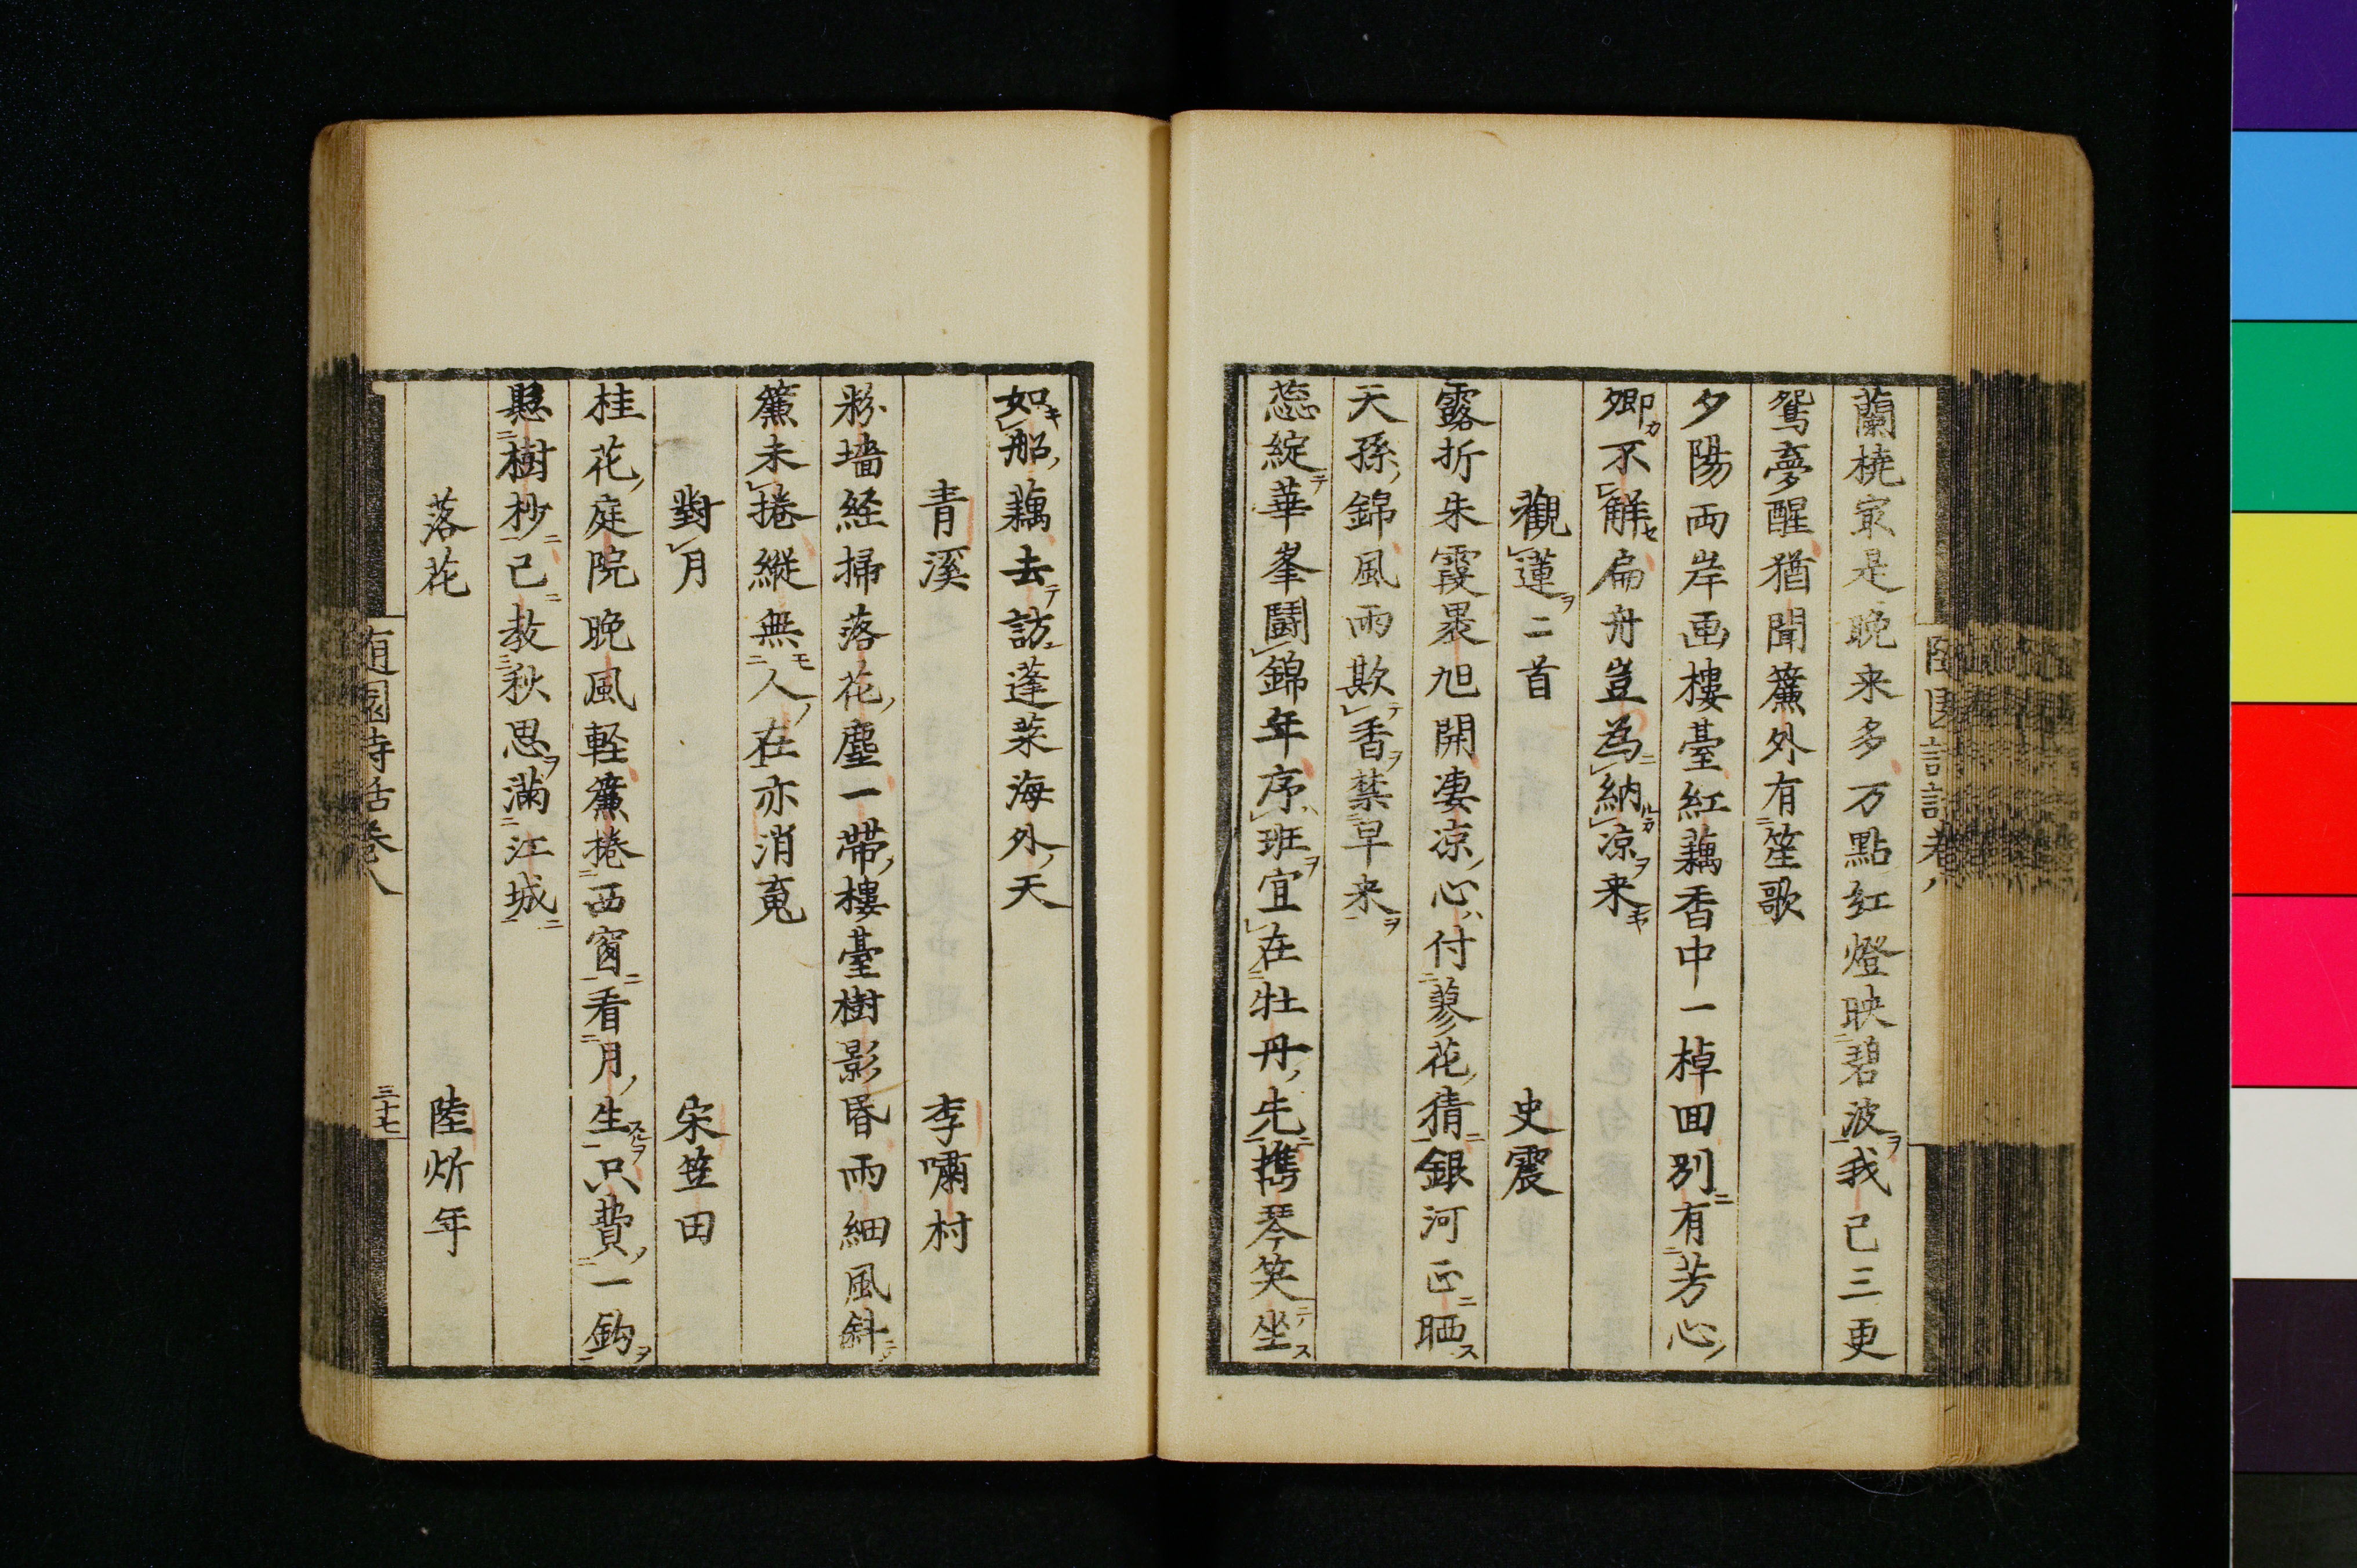 蘭橈㝡是晩来多万點紅燈映碧波我已三更
鴛夢醒猶聞簾外有笙歌
夕陽両岸画樓臺紅藕香中一棹回別有芳心
卿不解扁舟豈為納凉来
觀蓮二首 史震
露折朱霞暴旭開凄凉心付蓼花猜銀河正晒
天孫錦風雨欺香禁早来
蕊綻華峯鬪錦年序班宜在牡丹先携琴笑坐
如船藕去訪蓬萊海外天
青溪 李嘯村
粉墻経掃落花塵一帶樓臺樹影昏雨細風斜
簾未捲縱無人在亦消䰟
對月 宋笠田
桂花庭院晩風軽簾捲西窗看月生只費一鈎
懸樹杪已教秋思滿江城
落花 陸炘年
随園詩話巻八
三十七